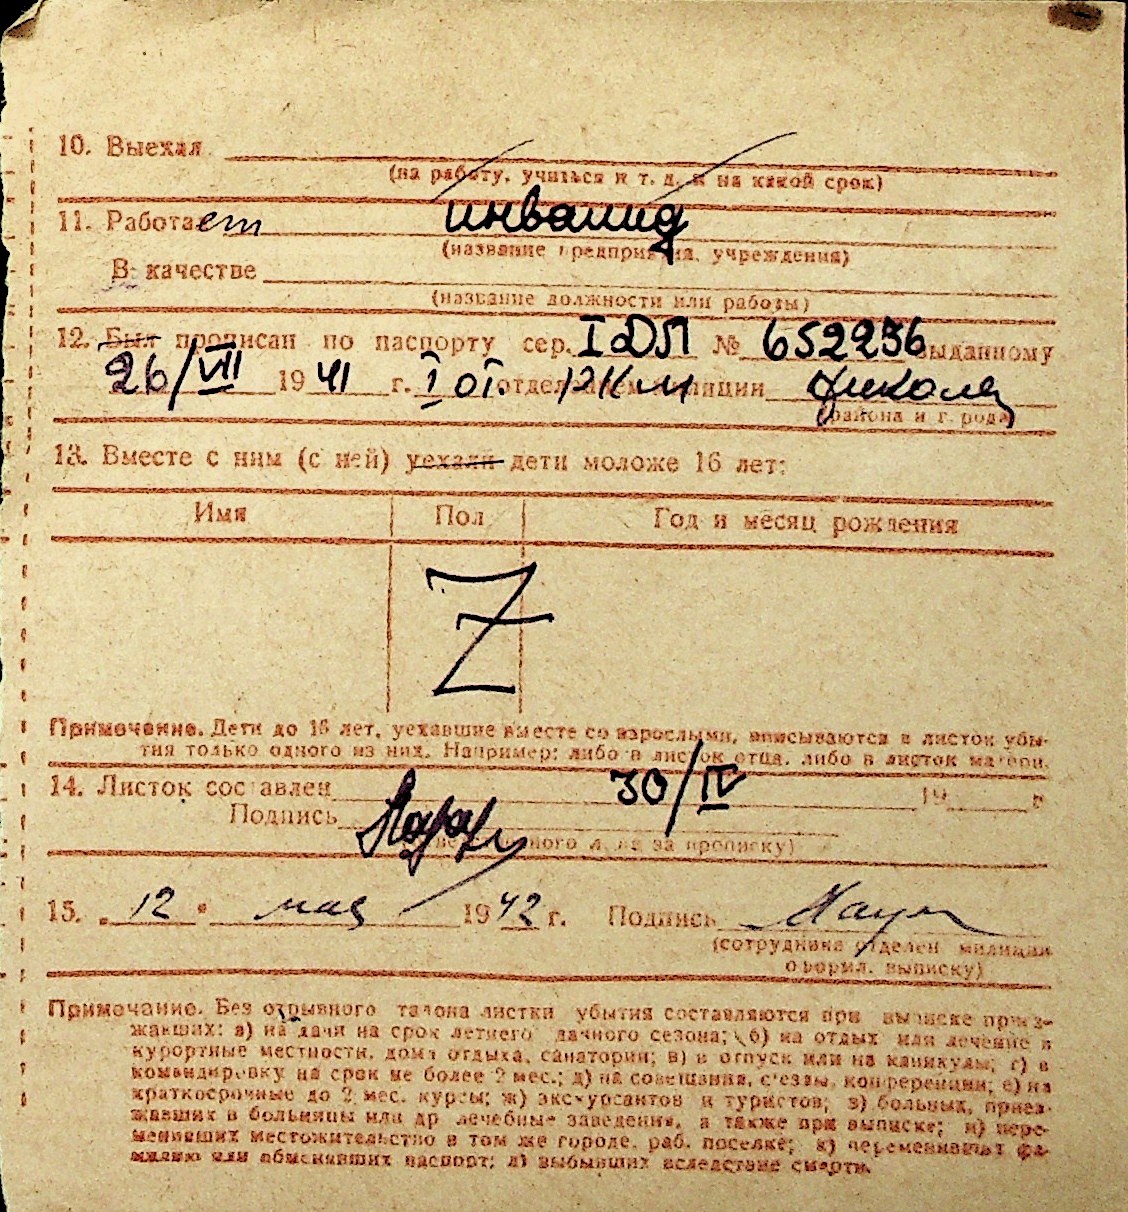 10. Выехал
(на работу, учиться и т. д. и на какой срок)
11. Работает инвалид
(название предприятия, учреждения)
В качестве
(название должности или работы)
12. Был прописан по паспорту сер. I ДЛ № 652236 выданному
26/VII 1941 г. I от. отделением РКМ милиции
(района и города)
13. Вместе с ним (с ней) уехали дети моложе 16 лет:
Имя Пол Год и месяц рождения
Z
Примечание. Дети до 16 лет, уехавшие вместе со взрослыми, вписываются в листок убы-
тия только одного из них. Например: либо в листок отца, либо в листок матери.
14. Листок составлен 30/IV 19 г.
Подпись
(ответственного лица за прописку)
15. „12" мая 1942 г. Подпись
(сотрудника отделен. милиции
оформл. выписку)
Примечание. Без отрывного талона листки убытия составляются при выписке приез-
жавших: а) на дачи на срок летнего дачного сезона; б) на отдых или лечение в
курортные местности, дома отдыха, санатории; в) в отпуск или на каникулы; г) в
командировку на срок не более 2 мес.; д) на совещания, с'езды, конференции; е) на
краткосрочные до 2 мес. курсы; ж) экскурсантов и туристов; з) больных, приез-
жавших в больницы или др лечебные заведения, а также при выписке; и) пере-
менивших местожительство в том же городе, раб. поселке; к) переменивших фа-
милию или обменявших паспорт; л) выбывших вследствие смерти.